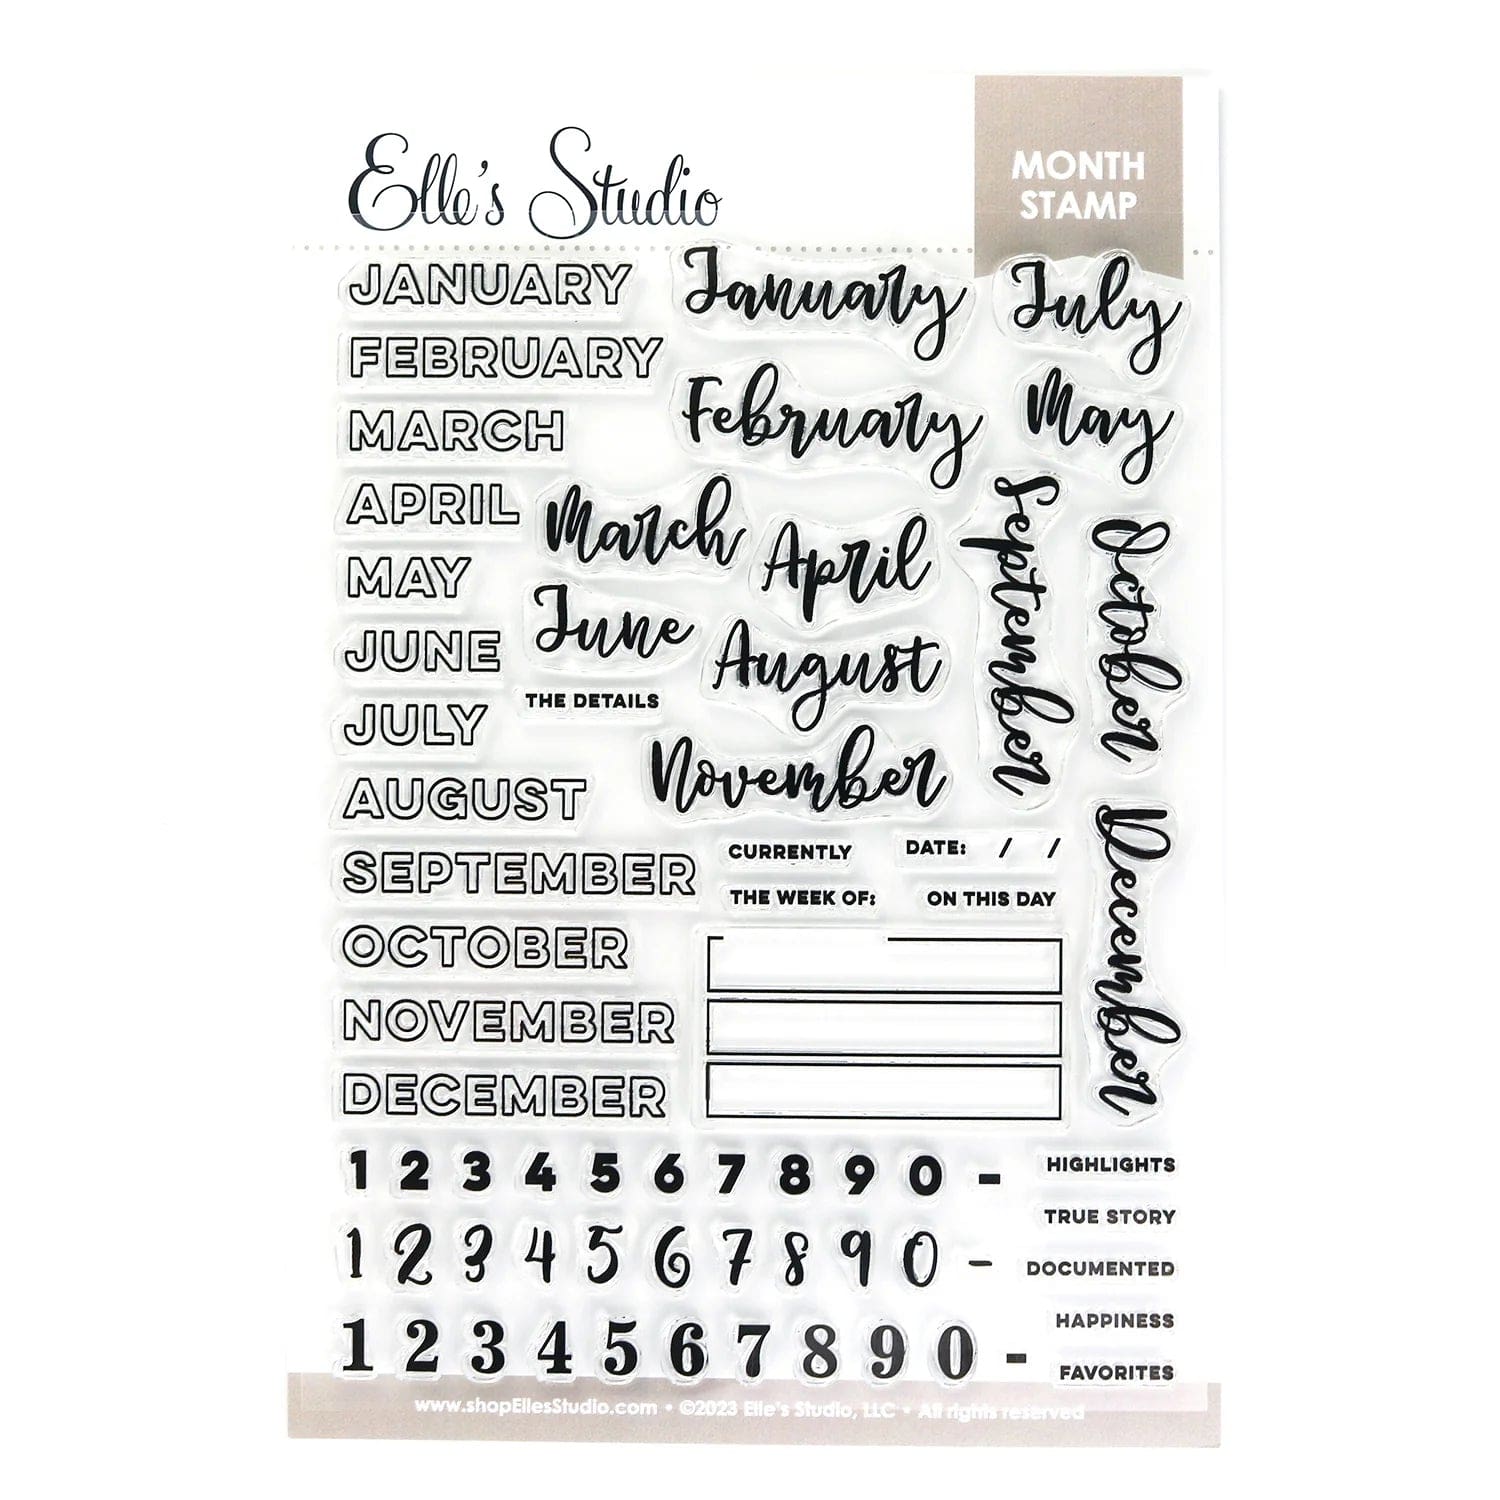 Elle's Studio
MONTH
STAMP
JANUARY
FEBRUARY
MARCH
APRIL
MAY
JUNE
JULY
AUGUST
SEPTEMBER
OCTOBER
NOVEMBER
DECEMBER
January
July
February
May
March
April
June
August
THE DETAILS
November
September
October
December
CURRENTLY
DATE: / /
THE WEEK OF:
ON THIS DAY
1 2 3 4 5 6 7 8 9 0 -
1 2 3 4 5 6 7 8 9 0 -
1 2 3 4 5 6 7 8 9 0 -
HIGHLIGHTS
TRUE STORY
DOCUMENTED
HAPPINESS
FAVORITES
www.shopEllesStudio.com • ©2023 Elle's Studio, LLC • All rights reserved